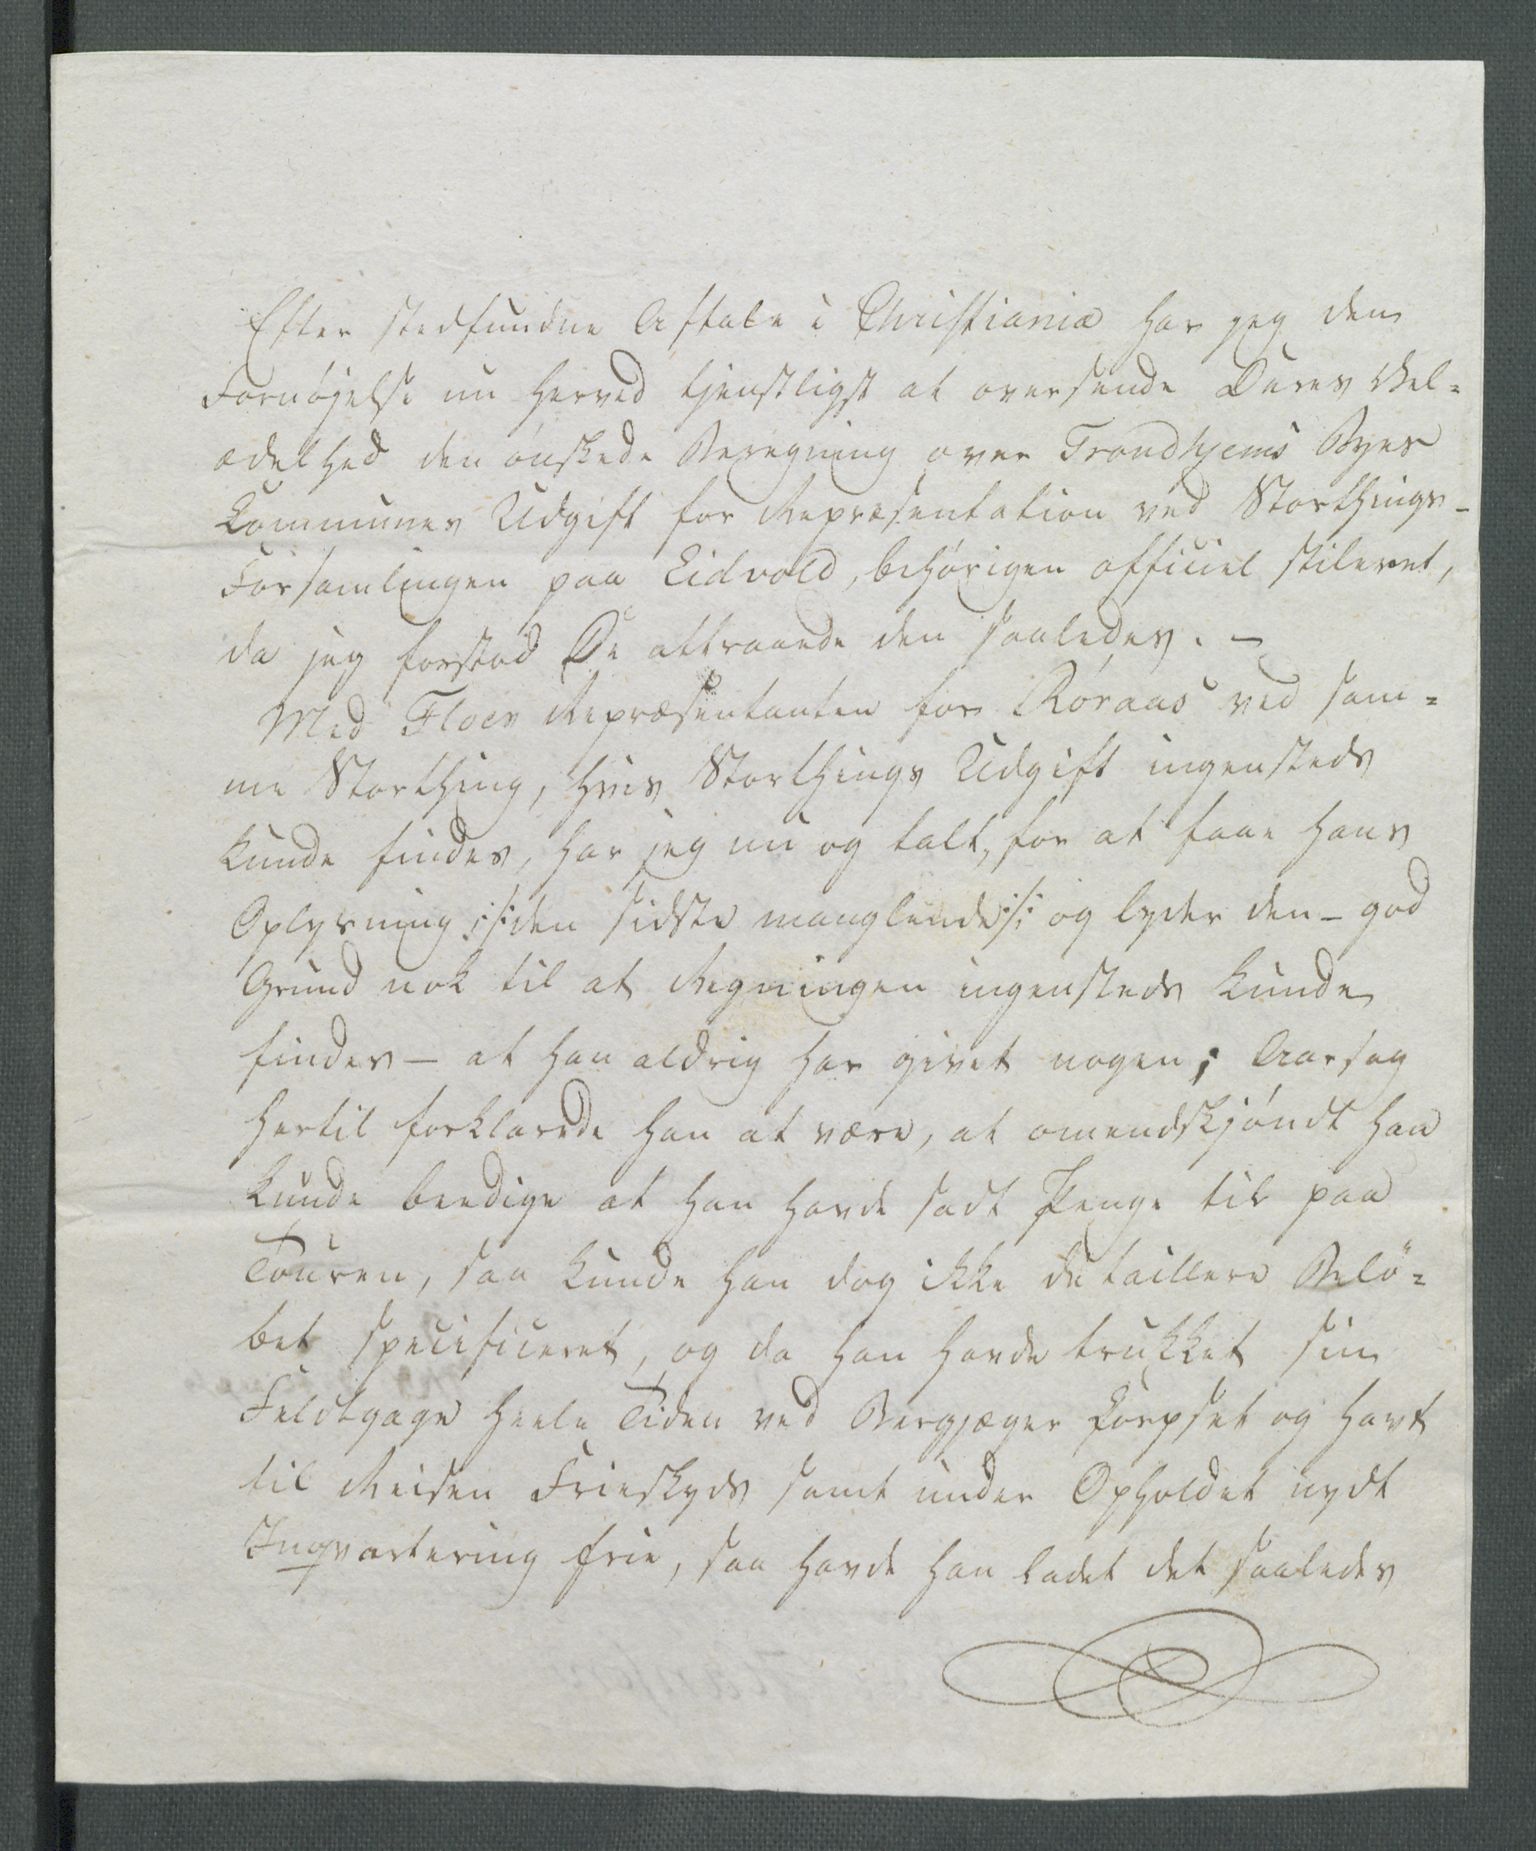 Efter stedfundne Aftale i Christiania har jeg den
Fornøjelse nu herved tjenstligst at oversende Deres Vel-
ædelhed den ønskede Beregning over Trondhjems Byes
Communes Udgift for Repræsentation ved Storthings-
Forsamlingen paa Eidvold, behørigen officiel stileret,
da jeg forstod De attraaede den saaledes. —
Med Floer Repræsentanten for Røraas ved sam-
me Storthing, hvis Storthings Udgift ingensteds
kunde findes, har jeg nu og talt, for at faae hans
Oplysning /: den sidste manglende :/ og lyder den – god
Grund nok til at Regningen ingensteds kunde
findes – at han aldrig har givet nogen; Aarsag
hertil forklarede han at være, at omendskjøndt han
kunde beedige at han havde sadt Penge til paa
Touren, saa kunde han dog ikke detaillere Belø-
bet specificeret, og da han havde trukket sin
Feldtgage heele Tiden ved Bergjæger Corpset og havt
til Reisen Frieskyds samt under Opholdet nydt
Inqvartering frie, saa havde han ladet det saaledes